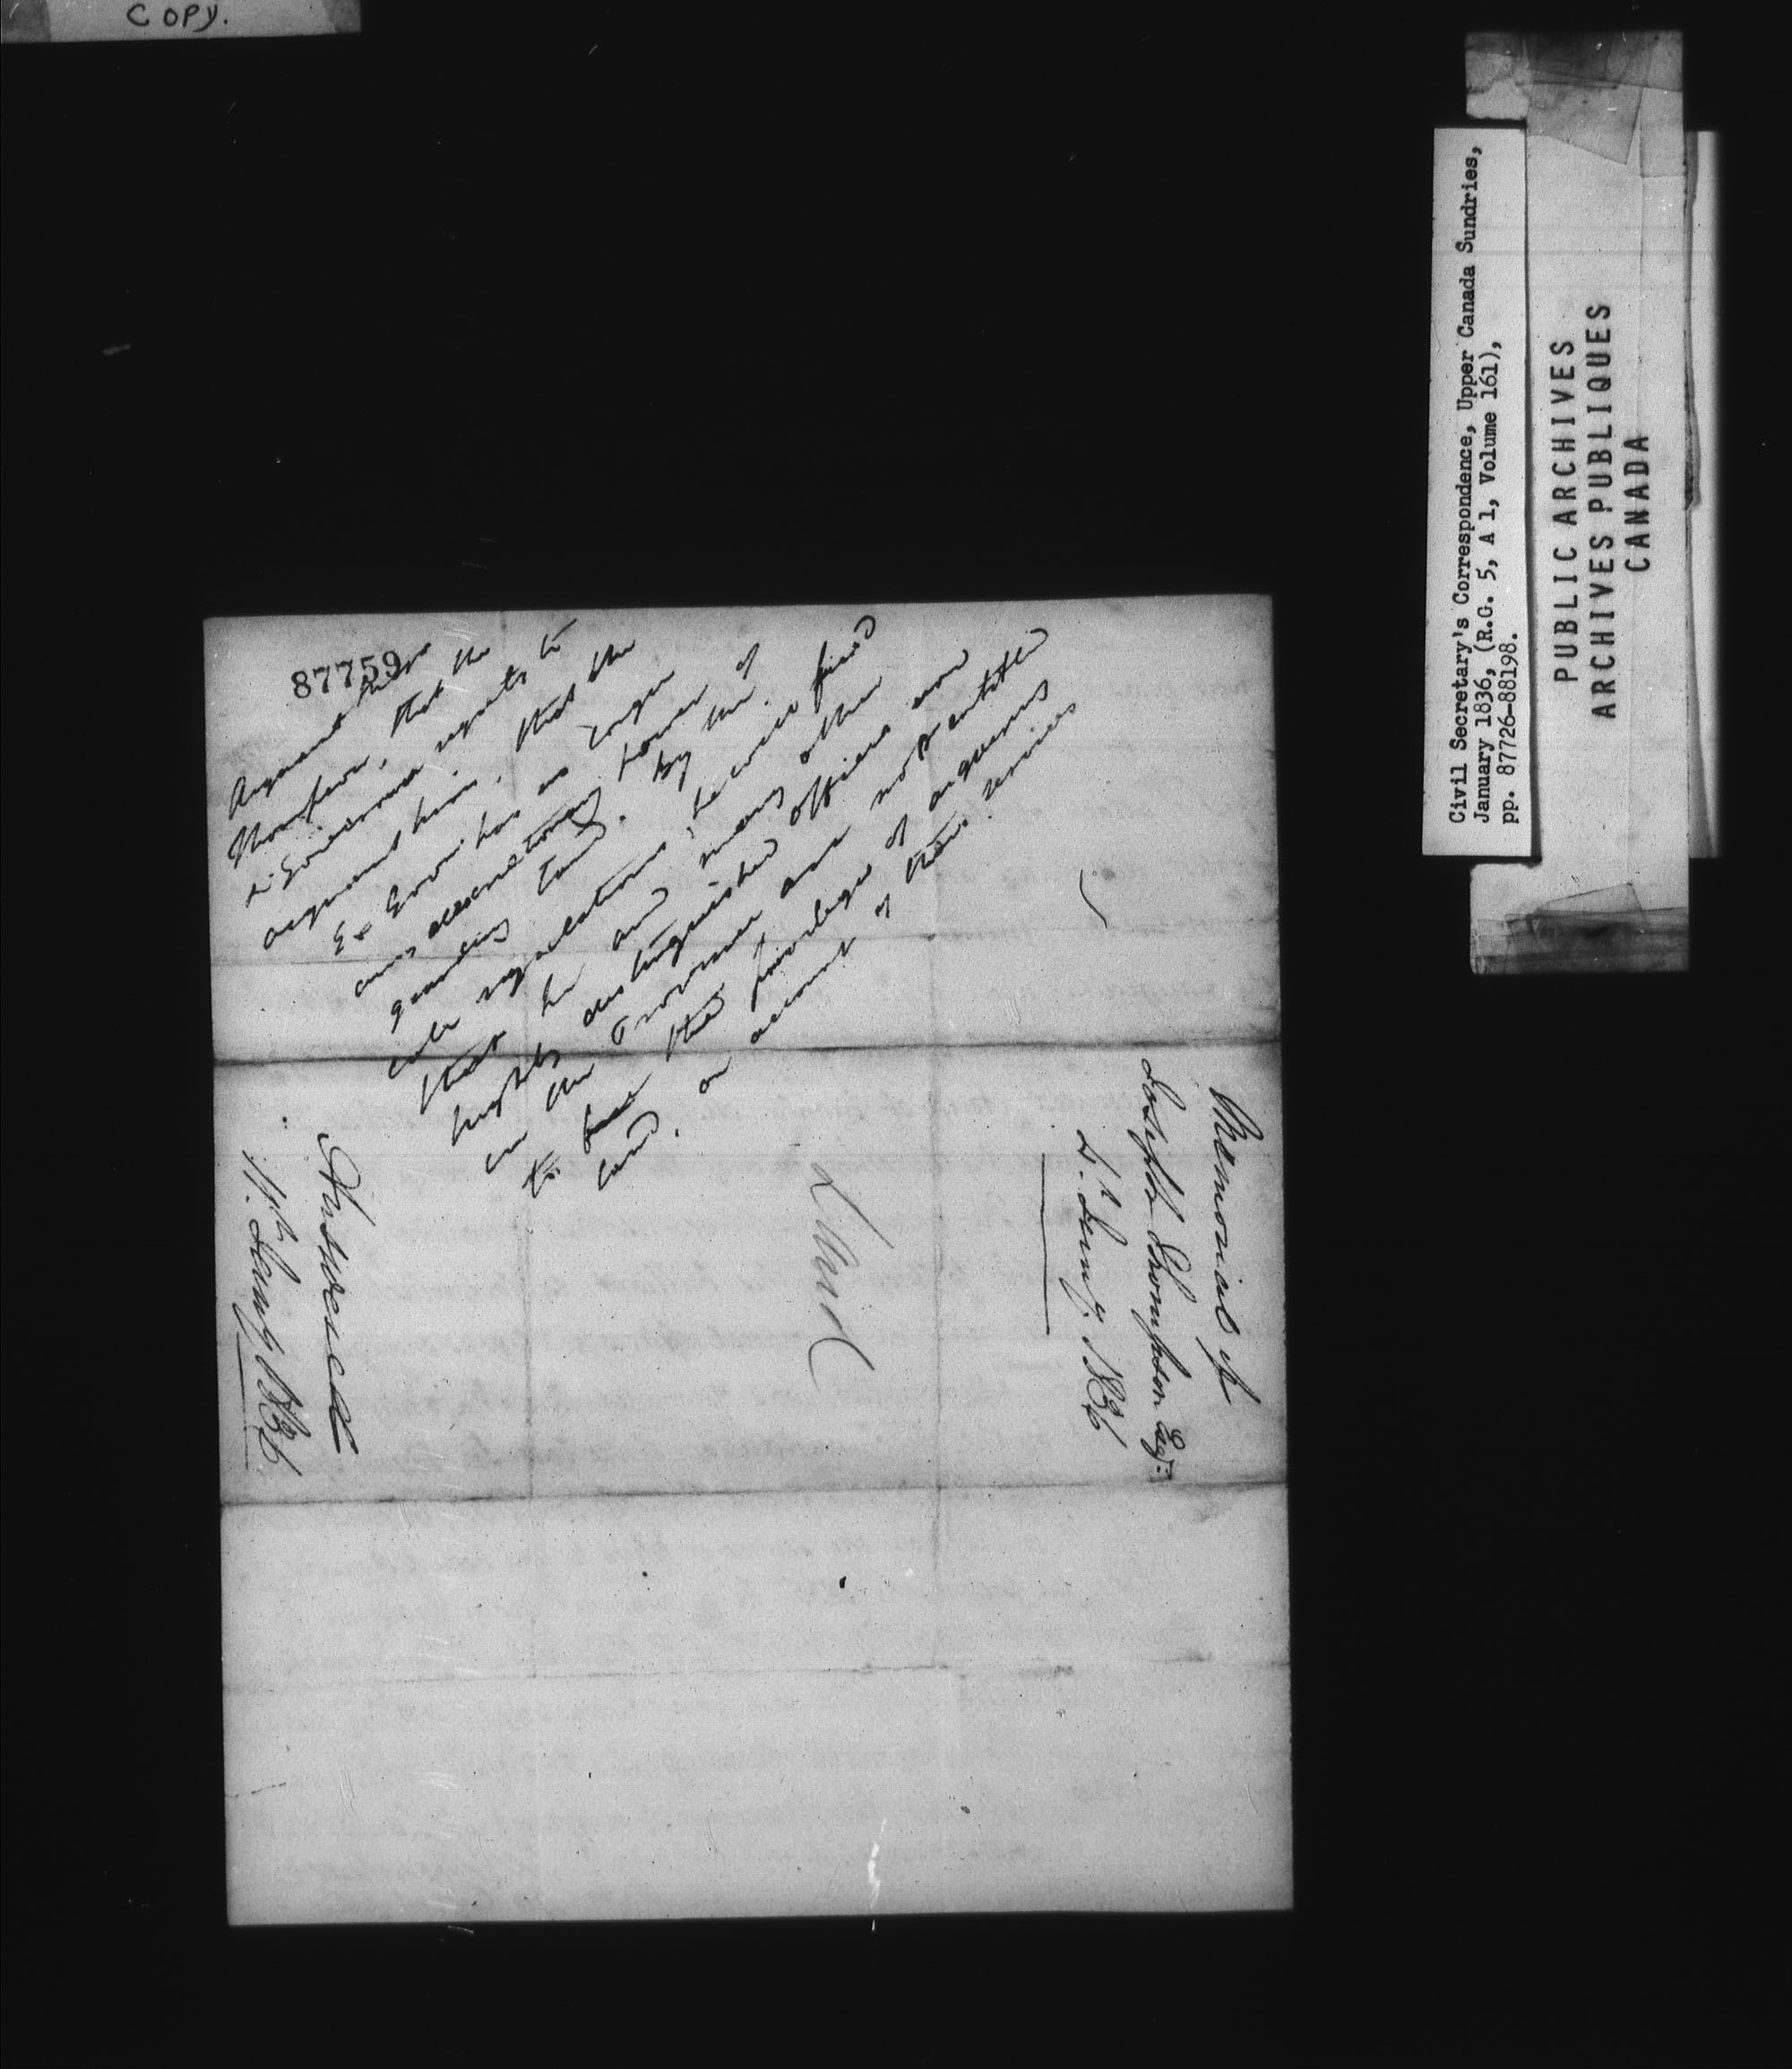 COPY.
87759
Acquaint Major
Thompson, that the
Lt Governor regrets to
acquaint him, that the
Lt Govr has no longer
any discretionary power of
granting land. By the
rules regulations, he will find
that he and many other
highly distinguished officers now
in the Province are not entitled
to have the privilege of acquiring
land on account of their services
Memorial of
Joseph Thompson Esqr:
5th Jany. 1836
Land
Answered
11th Jany 1836
Civil Secretary's Correspondence, Upper Canada Sundries,
January 1836, (R.G. 5, A 1, Volume 161),
pp. 87726-88198.
PUBLIC ARCHIVES
ARCHIVES PUBLIQUES
CANADA